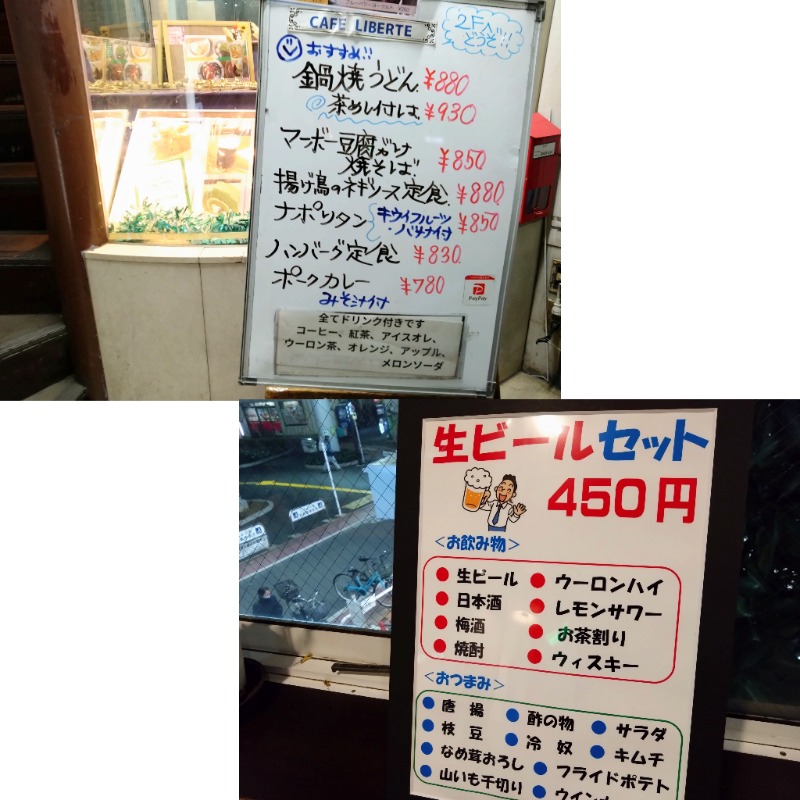 CAFE LIBERTE
2F入り
どうぞ!!
おすすめ!!
鍋焼うどん ¥880
茶めし付は ¥930
マーボー豆腐がけ
焼そば ¥850
揚げ鳥のネギソース定食 ¥880
ナポリタン キウイフルーツ ¥850
・バナナ付
ハンバーグ定食 ¥830
ポークカレー ¥780
みそ汁付
PayPay
全てドリンク付きです
コーヒー、紅茶、アイスオレ、
ウーロン茶、オレンジ、アップル、
メロンソーダ
生ビールセット
450円
<お飲み物>
生ビール ウーロンハイ
日本酒 レモンサワー
梅酒 お茶割り
焼酎 ウィスキー
<おつまみ>
唐揚 酢の物 サラダ
枝豆 冷奴 キムチ
なめ茸おろし フライドポテト
山いも千切り